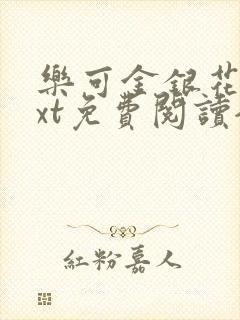 樂可金銀花
xt免費閱讀
紅粉嘉人